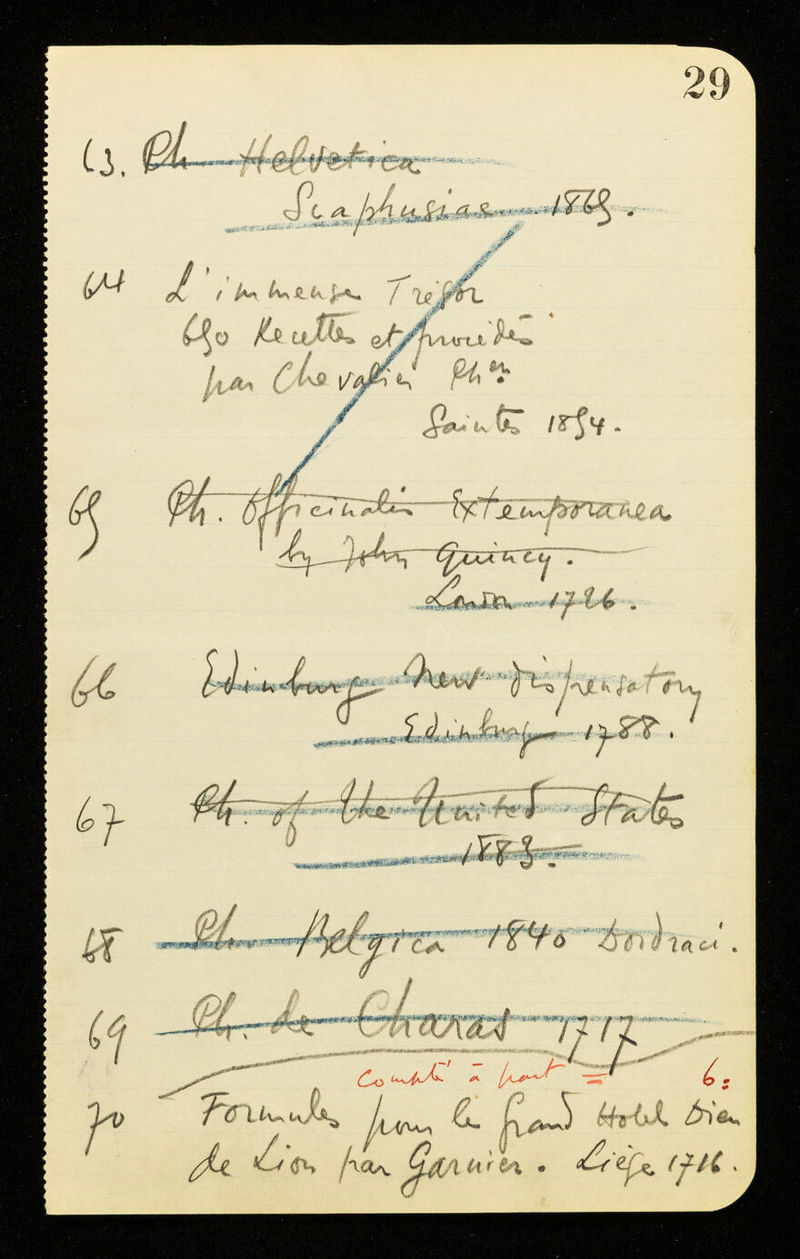 29
63. Ph Helvetica
Scaphusiae 1865.
64 L'immense Trésor
650 Recettes et procédés
par Chevalier Phen
Saintes 1854.
65 Ph. Officinalis Extemporanea
by John Quincy.
London 1726.
66 Edinburg New dispensatory
Edinburg 1788.
67 Ph. of the United States
1883.
68 Ph. Belgica 1840 Dordraci.
69 Ph. de Charas 1717
compté à part = 6=
70 Formules pour le grand Hotel Dieu
de Lion par Garnier. Liège 1716.